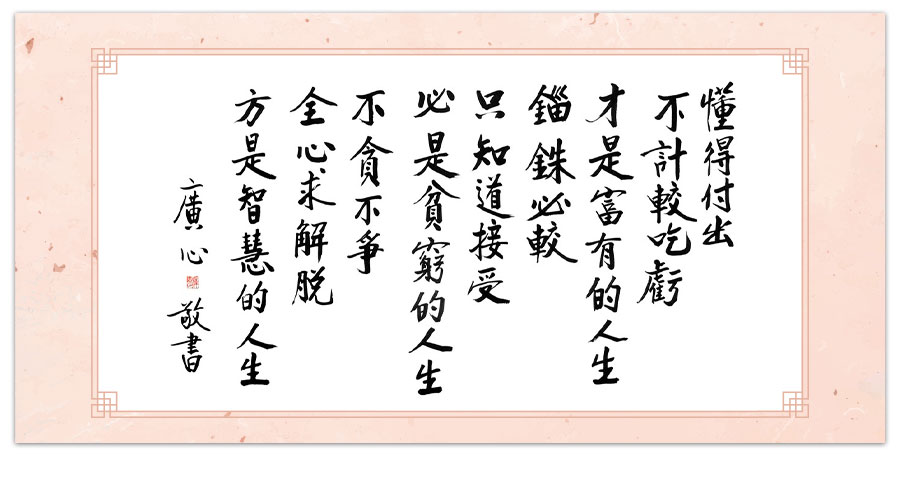 懂得付出
不計較吃虧
才是富有的人生
錙銖必較
只知道接受
必是貧窮的人生
不貪不爭
全心求解脫
方是智慧的人生
廣心 敬書